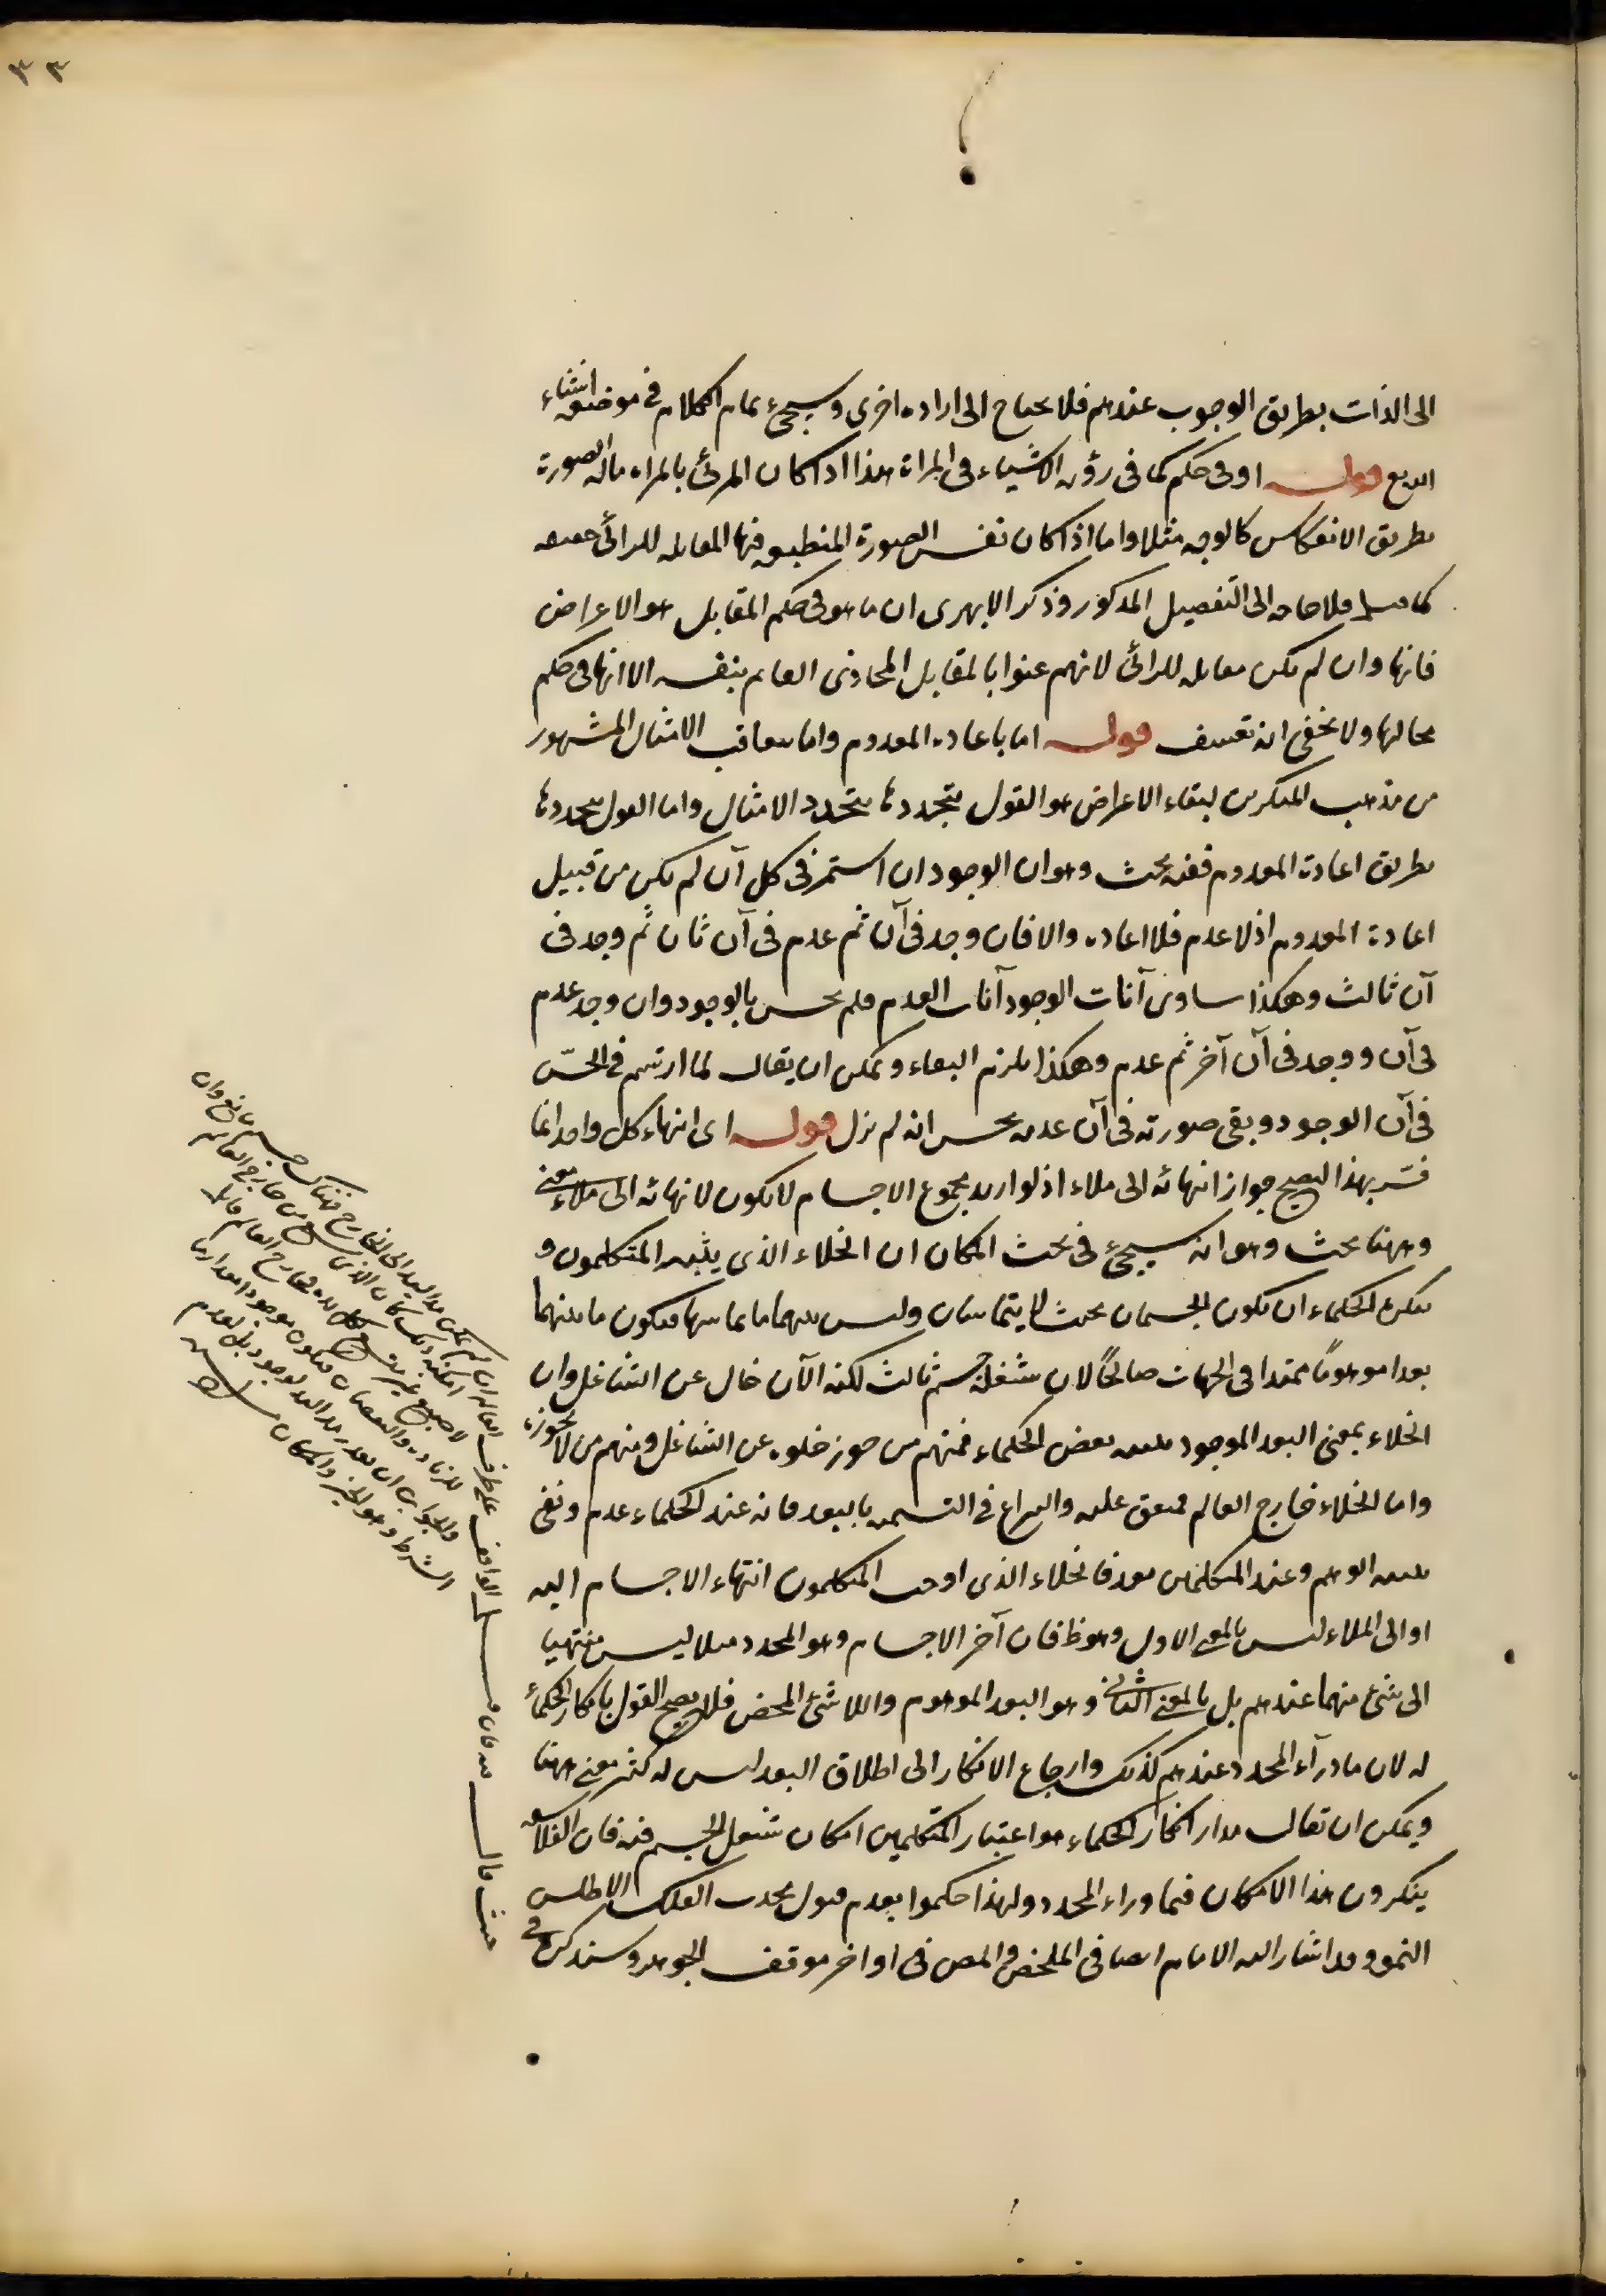 ٣٣
الى الذات بطريق الوجوب عندهم فلا يحتاج الى ارادة اخرى وسيجيء تمام الكلام في موضعه انشاء
الله تع قوله او في حكم كما في رؤية الاشياء في المرآة هذا اذا كان المرئي بالمرآة ماله الصورة
بطريق الانعكاس كالوجه مثلا واما اذا كان نفس الصورة المنطبعة فيها المقابلة للرائي حقيقة
كما فلا حاجة الى التفصيل المذكور وذكر الابهري ان ما هو في حكم المقابل هو الاعراض
فانها وان لم يكن مقابله للرائي لانهم عنوا بالمقابل المحاذي القائم بنفسه الا انها في حكم
محالها ولا يخفى انه تعسف قوله اما باعادة المعدوم واما بتعاقب الامثال المشهور
من مذهب المنكرين لبقاء الاعراض هو القول بتجددها بتجدد الامثال واما القول بتجددها
بطريق اعادة المعدوم ففيه بحث وهو ان الوجود ان استمر في كل آن لم يكن من قبيل
اعادة المعدوم اذ لا عدم فلا اعادة والا فان وجد في آن ثم عدم في آن ثان ثم وجد في
آن ثالث وهكذا ساوى آنات الوجود آنات العدم فلم يحس بالوجود وان وجد عدم
في آن ووجد في آن آخر ثم عدم وهكذا يلزم البقاء ويمكن ان يقال لما ارتسم في الحسّ
في آن الوجود وبقي صورته في آن عدمه يحس انه لم يزل قوله اى انتهاء كل واحد انما
فسّر بهذا ليصح جواز انتهائه الى ملاء اذ لو اريد مجموع الاجسام لا يكون لانهائه الى ملاء معنى
وههنا بحث وهو انه سيجيء في بحث المكان ان الخلاء الذي يثبته المتكلمون و
ينكره الحكماء ان يكون الجسمان بحيث لا يتماسان وليس بينهما ما يماسهما فيكون ما بينهما
بعدا موهومًا ممتدا في الجهات صالحًا لان يشغله جسم ثالث لكنه الآن خال عن الشاغل وان
الخلاء بمعنى البعد الموجود يثبته بعض الحكماء فمنهم من جوز خلوه عن الشاغل ومنهم من لا يجوزه
واما الخلاء خارج العالم فمتفق عليه والنزاع في التسمية بالبعد فانه عند الحكماء عدم ونفي
يثبته الوهم وعند المتكلمين بعد فالخلاء الذي اوجب المتكلمون انتهاء الاجسام اليه
او الى الملاء ليس بالمعنى الاول وهو ظ فان آخر الاجسام وهو المحدد مثلا ليس منتهيا
الى شئ منهما عندهم بل بالمعنى الثاني وهو البعد الموهوم واللاشئ المحض فلا يصح القول بانكار الحكماء
له لان ما ورآء المحدد عندهم كذلك وارجاع الانكار الى اطلاق البعد ليس له كثير معنى ههنا
ويمكن ان يقال مدار انكار الحكماء هو اعتبار المتكلمين امكان شغل الجسم فيه فان الفلاسفة
ينكرون هذا الامكان فيما وراء المحدد ولهذا حكموا بعدم قبول محدب الفلك الاطلس
النمو وقد اشار اليه الامام ايضا في الملخص والمص في اواخر موقف الجوهر وسنذكره في
حيث قال الواقف على طرف العالم ان لم يمكن مد اليد الى الخارج فهناك جسم مانع وان
امكنه ذلك كان الذي يسع من خارج العالم
والجواب ان تعذر مد اليد لوجود بل لعدم
الشرط وهو الحيز والمكان